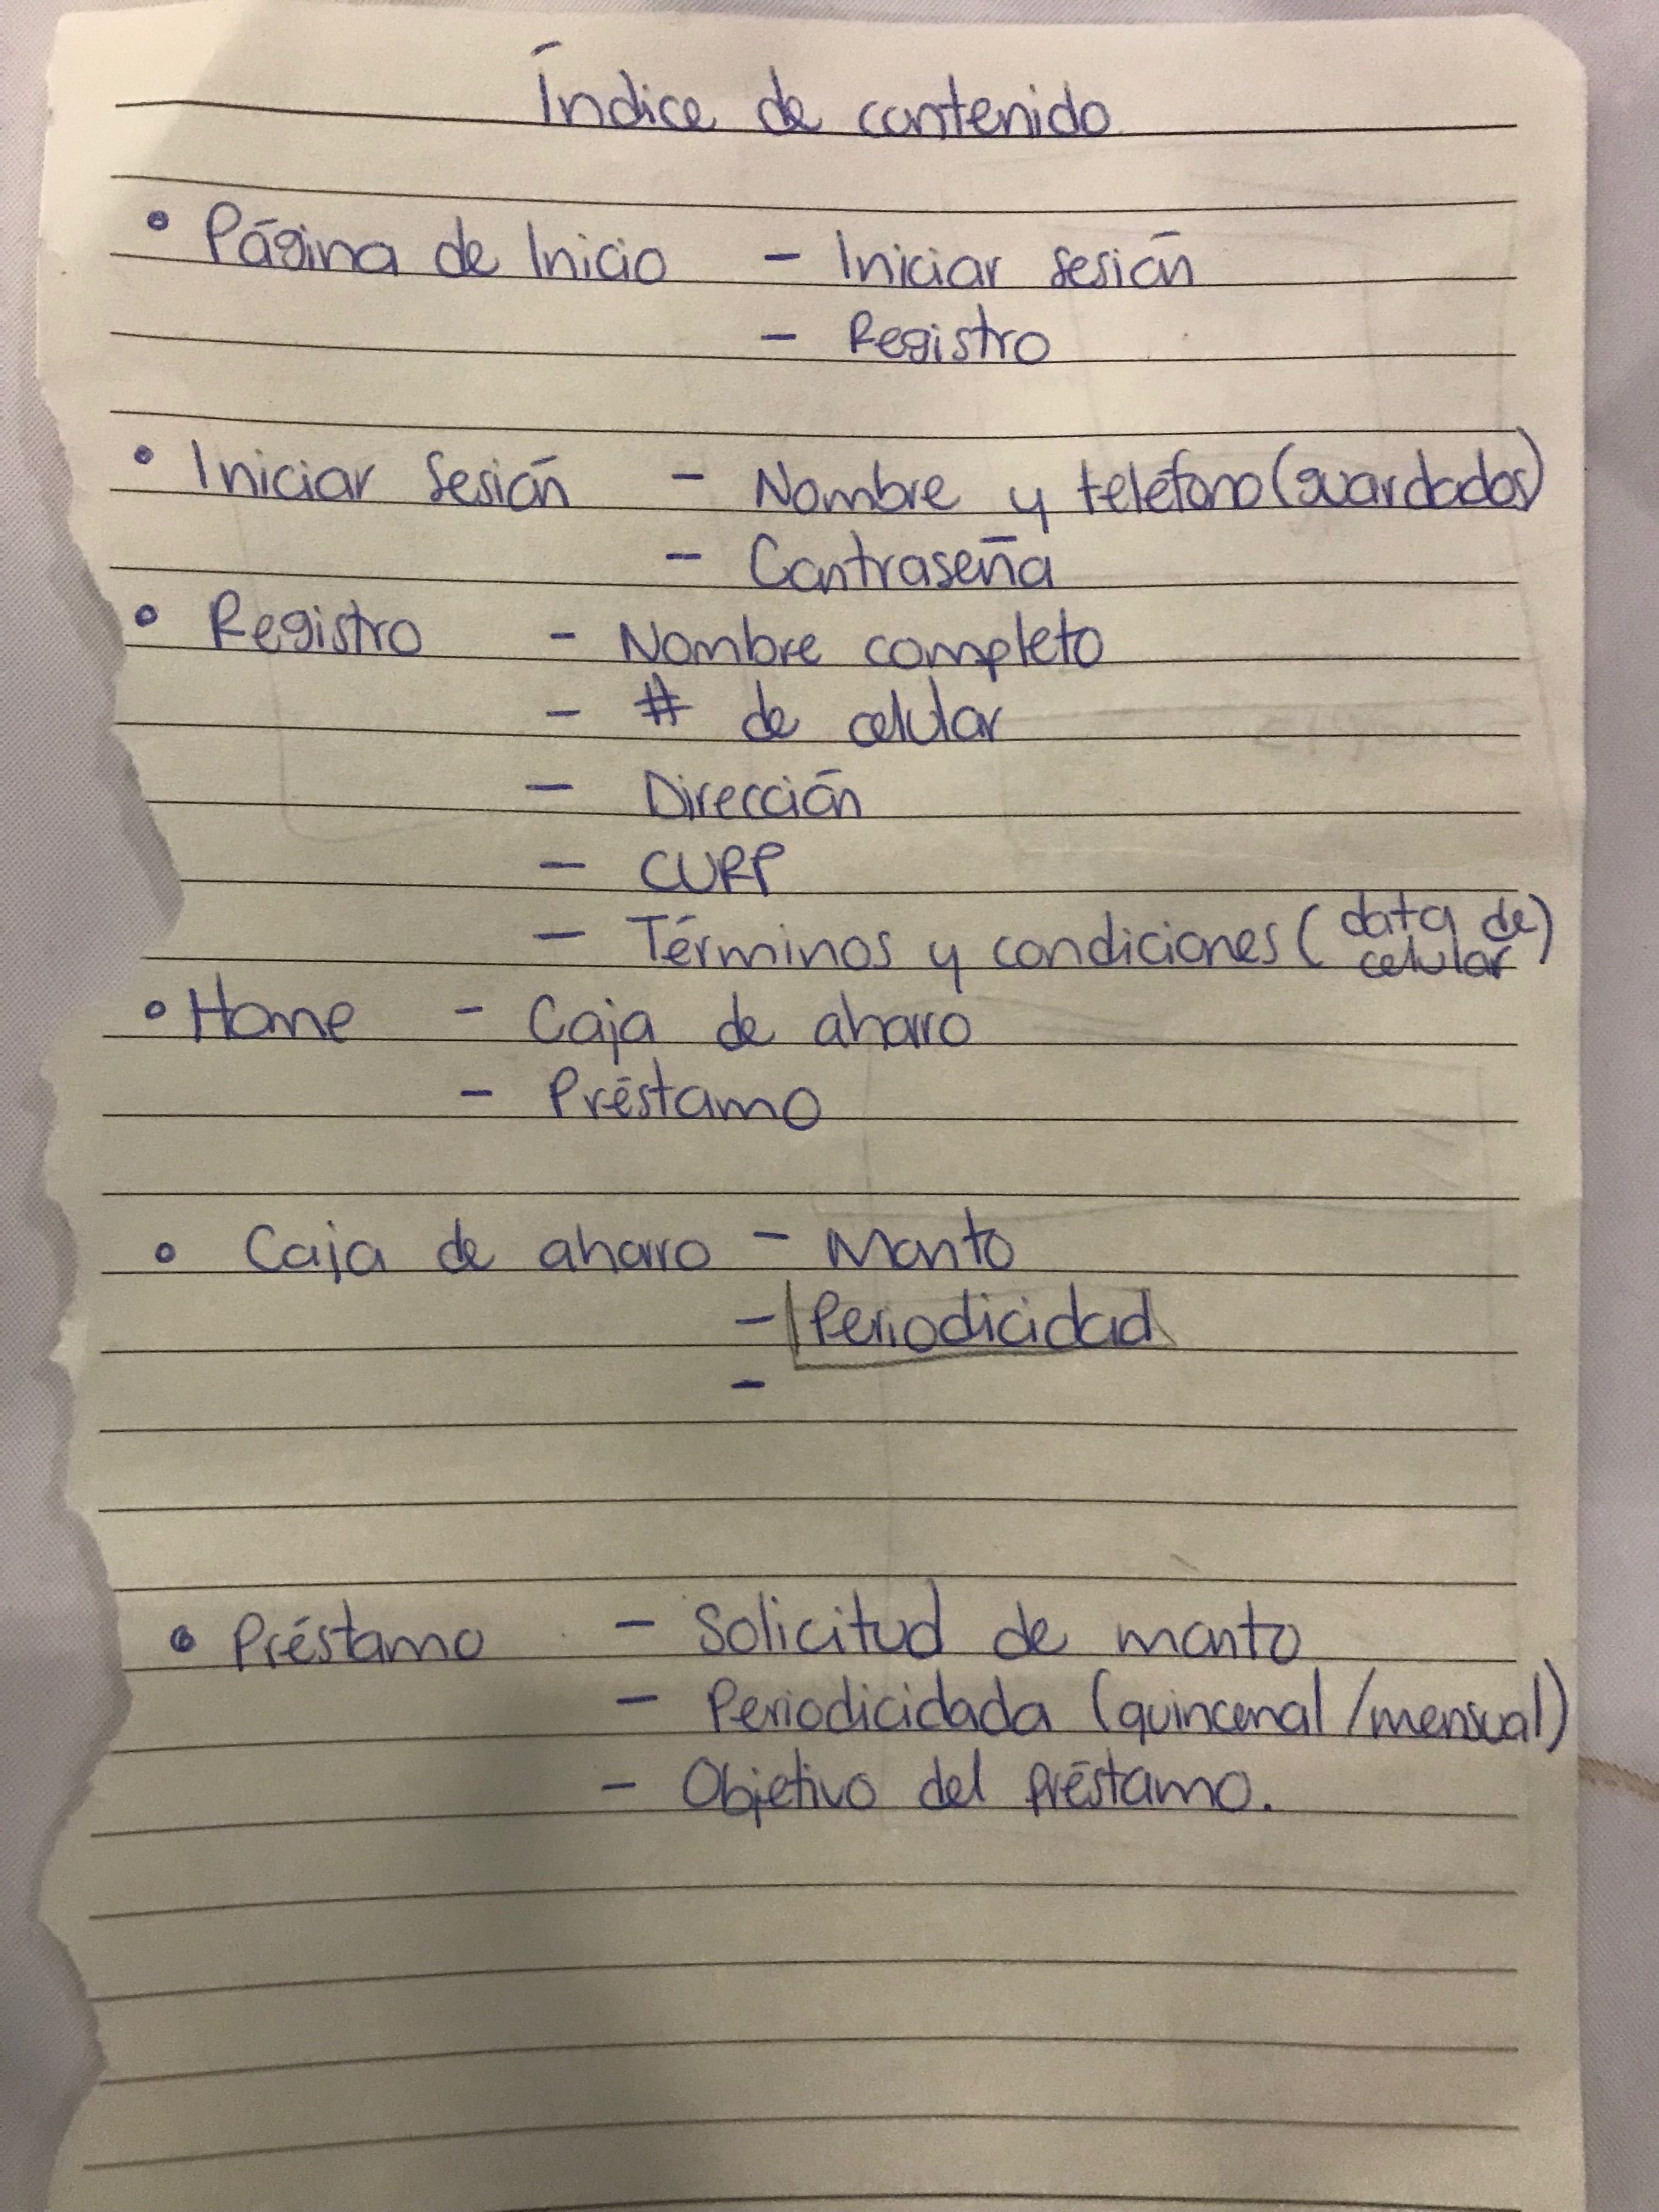 Índice de contenido
• Página de Inicio - Iniciar sesión
- Registro
• Iniciar sesión - Nombre y teléfono (guardados)
- Contraseña
• Registro - Nombre completo
- # de celular
- Dirección
- CURP
- Términos y condiciones (data de celular)
• Home - Caja de ahorro
- Préstamo
• Caja de ahorro - Monto
- Periodicidad
-
• Préstamo - Solicitud de monto
- Periodicidada (quincenal/mensual)
- Objetivo del préstamo.